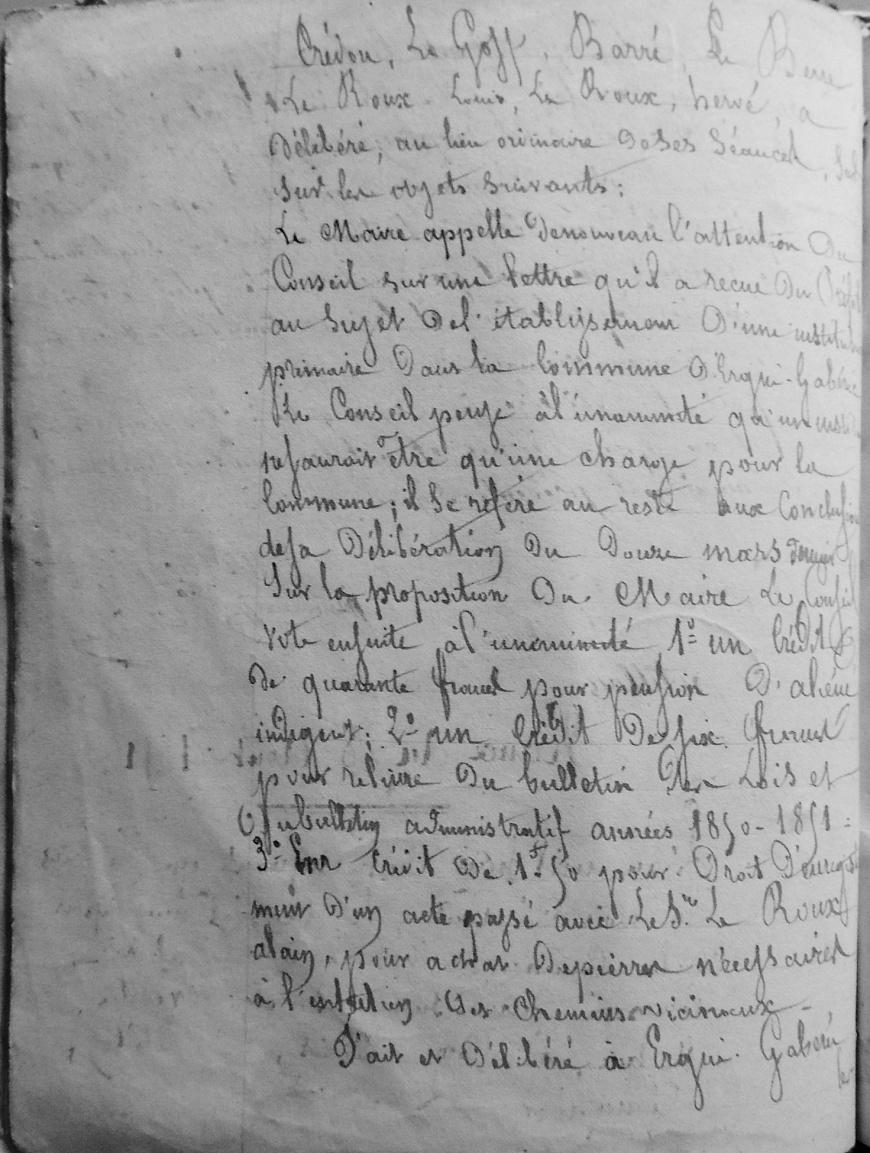 Crédou, Le Goff, Barré, Le Berre
Le Roux Louis, Le Roux, hervé, a
Délibéré, au lieu orinaire Deses Séances,
sur les objets suivants:
Le Maire appelle Denouveau l'attention Du
Conseil sur une lettre qu'il a recue Du Préfet
au Sujet Del'établissement D'une institution
primaire Dans la Commune D'Ergué-Gabéric
Le Conseil pense àl'unanimité qu'un
nesaurait être qu'une charge pour la
Commune; il se réfère au reste aux Conclusions
desa Délibération Du Douze mars dernier
Sur la proposition Du Maire Le Conseil
vote ensuite àl'unanimité 1º un Crédit
de quarante francs pour pension D'aliéné
indigent; 2º un Crédit Desix francs
pour reliure Du bulletin Des Lois et
Dubulletin administratif années 1850-1851=
3º Enn Crédit De 1f 50 pour Droit D'enregist
ment D'un acte passé avec LeSr. Le Roux
alain, pour achat Depierres nécessaires
à l'entretien Des Chemins vicinaux
Fait et Délibéré à Ergué-Gabéric